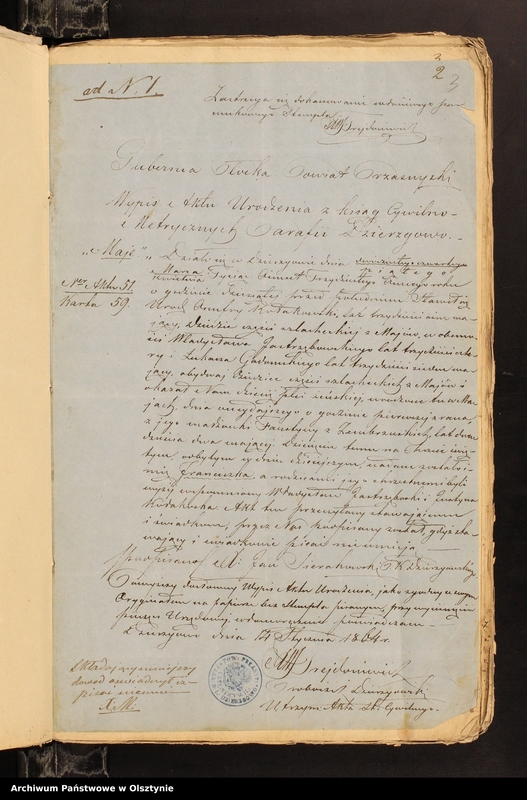 2 3
ad N. 1.
Zastrzega się dokonanie
Stempla
Gubernia Płocka Powiat Przasnyski
Wypis z Aktu Urodzenia z ksiąg Cywilno-
Metrycznych Parafii Dzierzgowo.
„Maje” Działo się w Dzierzgowie dnia dwudziestego czwartego
Nr Aktu 51. Marca Tysiąc Ośmset Trzydziestego roku
Karta 59. o godzinie dziesiątej przed południem Stawił się
Urodz. Kołakowski, lat trzydzieści ma-
jący, dziedzic części szlacheckiej z Majów, w obecno-
ści Władysława Zastrzębowskiego lat trzydzieści czte-
ry i Łukasza Gadomskiego lat trzydzieści siedem ma-
jący, obydwaj dziedzice części szlacheckich z Majów i
okazał Nam dziecię płci żeńskiej urodzone tu w Ma-
jach, dnia wczorajszego o godzinie pierwszej z rana,
z jego małżonki Faustyny z Zembrzuskich, lat dwa-
dzieścia dwa mającej. Dziecięciu temu na Chrzcie świę-
tym odbytym w dniu dzisiejszym, nadane zostało i-
mię Franciszka, a rodzicami jego chrzestnemi byli
wyżej wspomniany Władysław Zastrzębowski i
Kołakowska Akt ten przeczytany stawającemu
i świadkom, przez Nas podpisany został, gdyż sta-
wający i świadkowie pisać nieumieją
(podpisano) X. Jan Sierakowski P. K. Dzierzgowski
Niniejszy dosłowny Wypis Aktu Urodzenia, jako zgodny z swym
Oryginałem na papierze bez Stempla pisanym, przy wyciśnięciu
pieczęci Urzędowej, własnoręcznie poświadczam
Dzierzgowo dnia 14 Stycznia 1864 r.
Proboszcz Dzierzgowski
Utrzym. Akta St. Cywilnego.
pisać nieumie
Archiwum Państwowe w Olsztynie